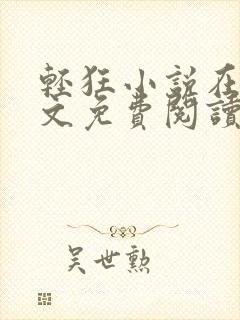 輕狂小說在
文免費閱讀
吳世勲